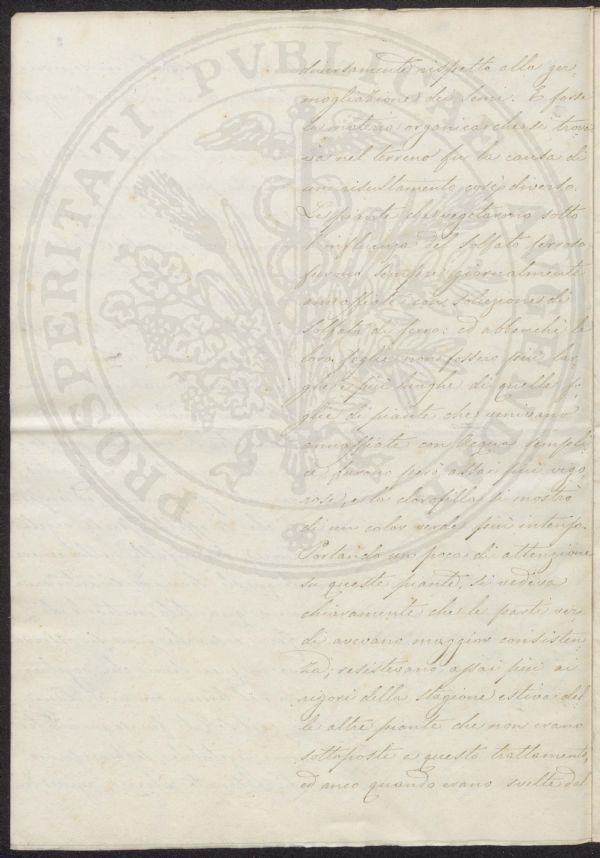 diversamente rispetto alla ger
mogliazione dei semi. E forse
la materia organica che si trova
va nel terreno fu la causa di
un risultamento così diverso.
Le piante che vegetarono sotto
l'influenza del solfato ferroso
furono sempre giornalmente
annaffiate con soluzione di
Solfato di ferro: ed abbenchè le
loro foglie non fossero più lar
ghe, e più lunghe di quelle fo
glie di piante che venivano
annaffiate con acqua sempli
ce furono però assai più vigo
rose, e la clorofilla si mostrò
di un color verde più intenso.
Portando un poco di attenzione
su queste piante, si vedeva
chiaramente che le parti ver
di avevano maggior consisten
za; resistevano assai più ai
rigori della stagione estiva del
le altre piante che non erano
sottoposte a questo trattamento,
ed anco quando erano svelte dal
PROSPERITATI PVBLICAE AVGENDAE